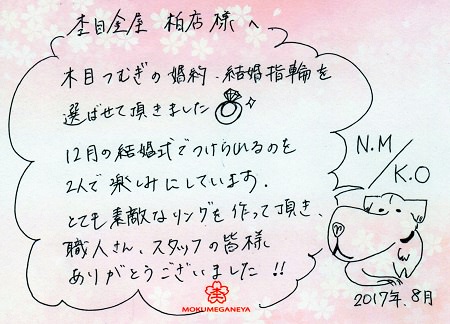 杢目金屋 柏店様へ
木目つむぎの婚約・結婚指輪を
選ばせて頂きました
12月の結婚式でつけられるのを
2人で楽しみにしています.
とても素敵なリングを作って頂き、
職人さん、スタッフの皆様
ありがとうございました!!
N.M/K.O
2017年.8月
MOKUMEGANEYA